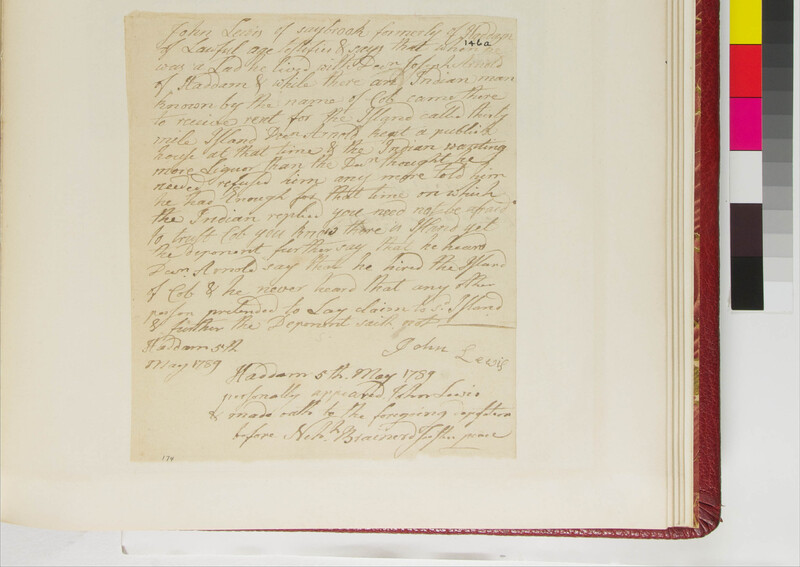 John Lewis of saybrook formerly of Haddam
146a
of Lawful age testifies & says that when he
was a Lad he lived with Deacn Joseph Arnold
of Haddam & while there an Indian man
known by the name of Cob came there
to receive rent for the Island called thirty
mile Island Deacn Arnold kept a publick
house at that time & the Indian wanting
more Liquor than the Dean thought he
needed refused him any more told him
he had Enough for that time on which
the Indian replied you need not be afraid
to trust Cob you know there is Island yet
the deponent further say that he heard
Deacn Arnold say that he hired the Island
of Cob & he never heard that any other
person pretended to Lay claim to sd Island
& further the Deponent saith not
Haddam 5th
May 1789
John Lewis
Haddam 5th May 1789
personally appeared John Lewis
& made oath to the foregoing
before Nehh Brainerd Justice peace
174